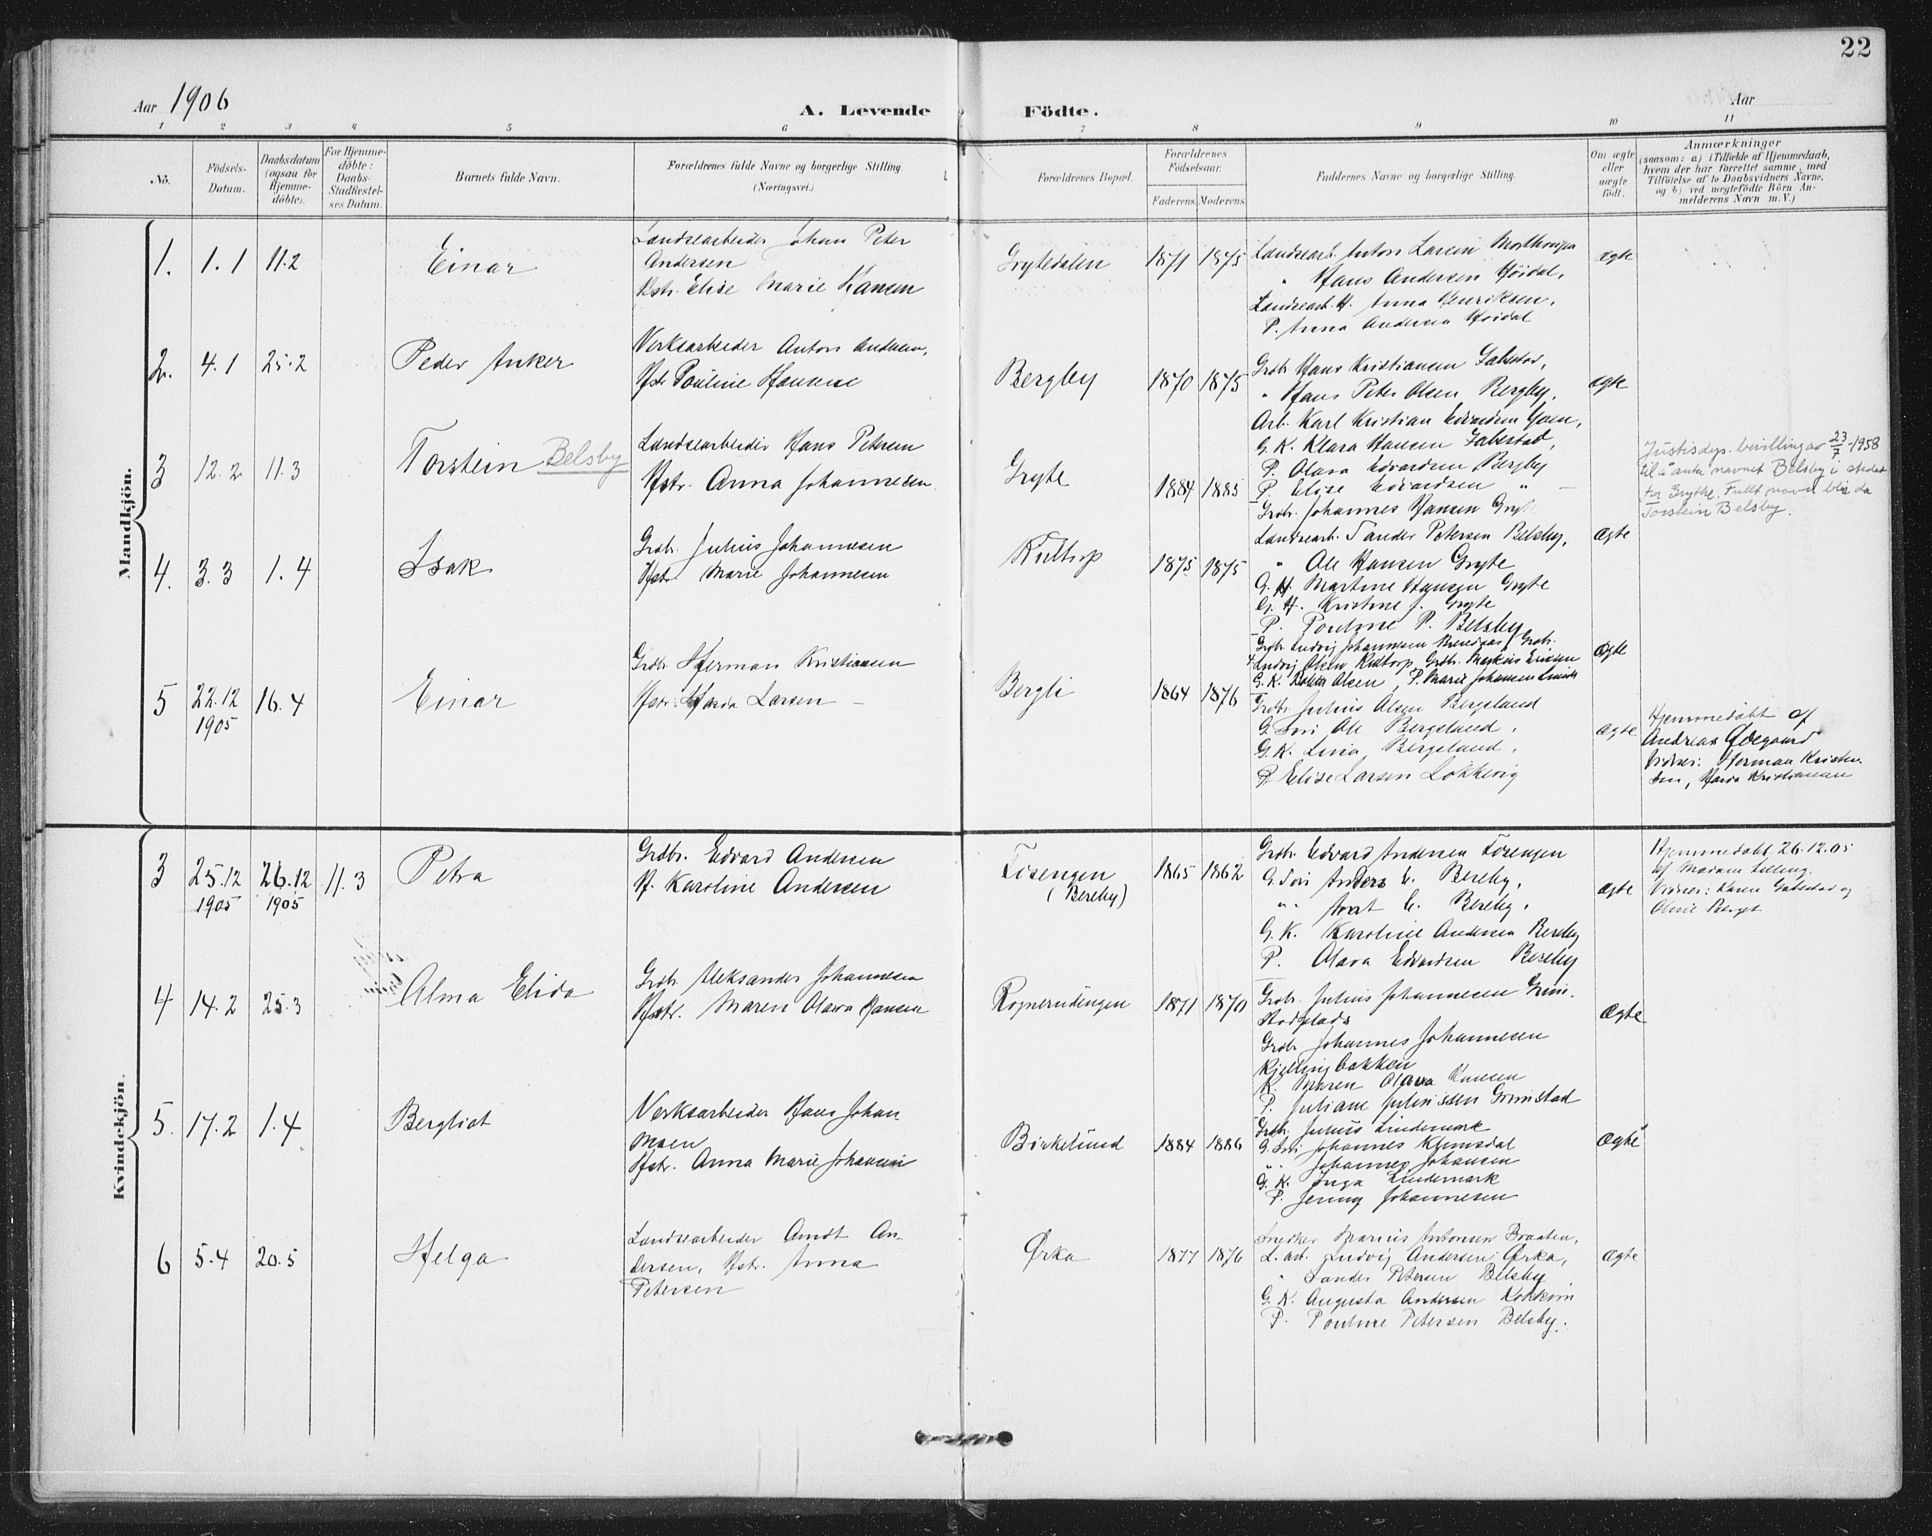 22
Aar 1906
A. Levende
Födte.
Aar
1 2 3 4 5 6 7 8 9 10 11
No.
Födsels-
Datum.
Daabsdatum
(ogsaa for
Hjemme-
döbte).
For Hjemme-
döbte:
Daabs-
Stadfæstel-
ses Datum.
Barnets fulde Navn.
Forældrenes fulde Navne og borgerlige Stilling
(Næringsvei.)
Forældrenes Bopæl.
Forældrenes
Födselsaar.
Faderens. Moderens.
Faddernes Navne og borgerlige Stilling.
Om ægte
eller
uægte
födt.
Anmærkninger
(saasom: a) i Tilfælde af Hjemmedaab,
hvem der har forrettet samme, med
Tilföielse af to Daabsvidners Navne,
og b) ved uægtefödte Börn An-
melderens Navn m. V.)
Mandkjön.
1. 1.1 11.2
Einar
Landsearbeider Johan Peter
Andersen
Hstr. Elise Marie Hansen
Grytedalen
1871 1875
Landsearb. Anton Larsen
" Hans Andersen Høidal,
Landsearb. H. Anna Henriksen,
P. Anna Andersen Høidal
ægte
2. 4.1 25.2
Peder Anker
Verksarbeider Anton Andersen,
Hstr Pauline Hansene
Bergby
1870 1875
Grdbr Hans Kristiansen Gabestad,
" Hans Peter Olsen Bergby,
Arb. Karl Kristian Edvardsen
G. K. Klara Hansen Gabestad,
P. Olava Edvardsen Bergby
P. Elise Edvardsen "
ægte
3 12.2 11.3
Torstein Belsby
Landsearbeider Hans Petersen
Hstr. Anna Johannesen
Gryte
1884 1885
Grdbr. Johannes Hansen Gryte
Landsearb. Sander Petersen Belsby,
" Ole Hansen Gryte
G. H. Martine Hansen Gryte
G. H. Kristine J. Gryte
P. Pouline P. Belsby
ægte
Justisdep. bevilling av 23/7-1958
til å anta navnet Belsby i stedet
for Grytke. Fullt navn blir da
Torstein Belsby.
4. 3.3 1.4
Isak
Grdbr. Julius Johannesen
Hstr. Marie Johannesen
Kultorp
1875 1875
Grdbr. Ludvig Johannesen Grdbr.
Ludvig Olsen Kultorp, Grdbr. Markus Eriksen
G. K. Olsen, P. Marie Johansen
ægte
5 22.12
1905
16.4
Einar
Grdbr. Herman Kristiansen
Hstr. Harda Larsen
Bergli
1864 1876
Grdbr. Julius Olsen Bergeland
G. Søn Ole Bergeland,
G. K. Lina Bergeland,
P. Elise Larsen Lökkevig
ægte
Hjemmedøbt af
Andreas Ødegaard
Vidner: Herman Kristen-
sen, Harda Kristiansen
Kvindekjön.
3 25.12
1905
26.12
1905
11.3
Petra
Grdbr. Edvard Andersen
H. Karoline Andersen
Tösengen
(Bereby)
1865 1862
Grdbr. Edvard Andersen Tösengen
G. Søn Anders E. Bereby,
" " E. Bereby,
G. K. Karoline Andersen Bereby
P. Olava Edvardsen Bereby
ægte
Hjemmedøbt 26.12.05
af Madam Lelleng.
Vidner: Karen Gabestad og
Oline Berget
4 14.2 25.3
Alma Elida
Grdbr Aleksander Johannesen
Hstr. Maren Olava Hansen
Rognerudengen
1871 1870
Grdbr. Julius Johannesen Grim-
stadplads
Grdbr Johannes Johannesen
Kjellingbakken
K. Maren Olava Hansen
P. Juliane Juliussen Grimstad
ægte
5. 17.2 1.4
Bergliot
Verksarbeider Hans Johan-
nesen
Hstr. Anna Marie Johansen
Birkelund
1884 1886
Grdbr. Julius Lindemark
G. Søn Johannes Klemsdal
" Johannes Johansen
G. K. Inga Lindemark
P. Jenny Johannesen
ægte
6 5.4 20.5
Helga
Landsearbeider Arndt An-
dersen, Hstr. Anna
Petersen
Ørka
1877 1876
Snedker Marius Antonsen Braaten,
L. arb. Ludvig Andersen Ørka,
" Sander Petersen Belsby
G. K. Augusta Andersen
P. Pouline Petersen Belsby.
ægte